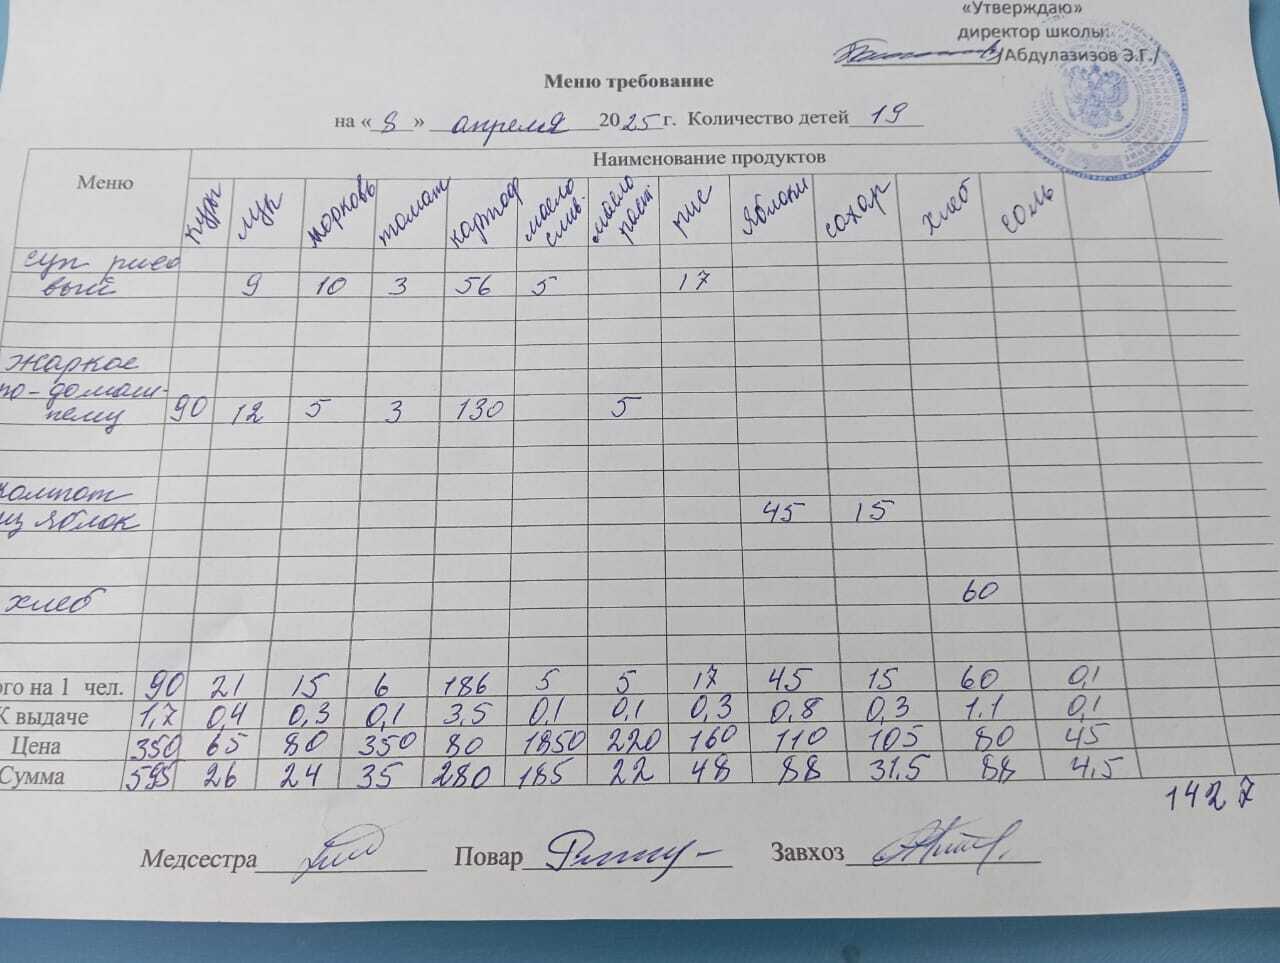 «Утверждаю»
директор школы:
/Абдулазизов Э.Г./
Меню требование
на «8» апреля 2025 г. Количество детей 19
Меню Наименование продуктов
лук морковь томат картоф масло слив. масло раст. рис яблоки сахар хлеб соль
суп рисо
вый 9 10 3 56 5 17
жаркое
по-домаш-
нему 90 12 5 3 130 5
компот
из яблок 45 15
хлеб 60
ого на 1 чел. 90 21 15 6 186 5 5 17 45 15 60 0,1
К выдаче 1,7 0,4 0,3 0,1 3.5 0,1 0,1 0,3 0,8 0,3 1.1 0,1
Цена 350 65 80 350 80 1850 220 160 110 105 80 45
Сумма 595 26 24 35 280 185 22 48 88 31.5 88 4,5
1427
Медсестра Повар Завхоз